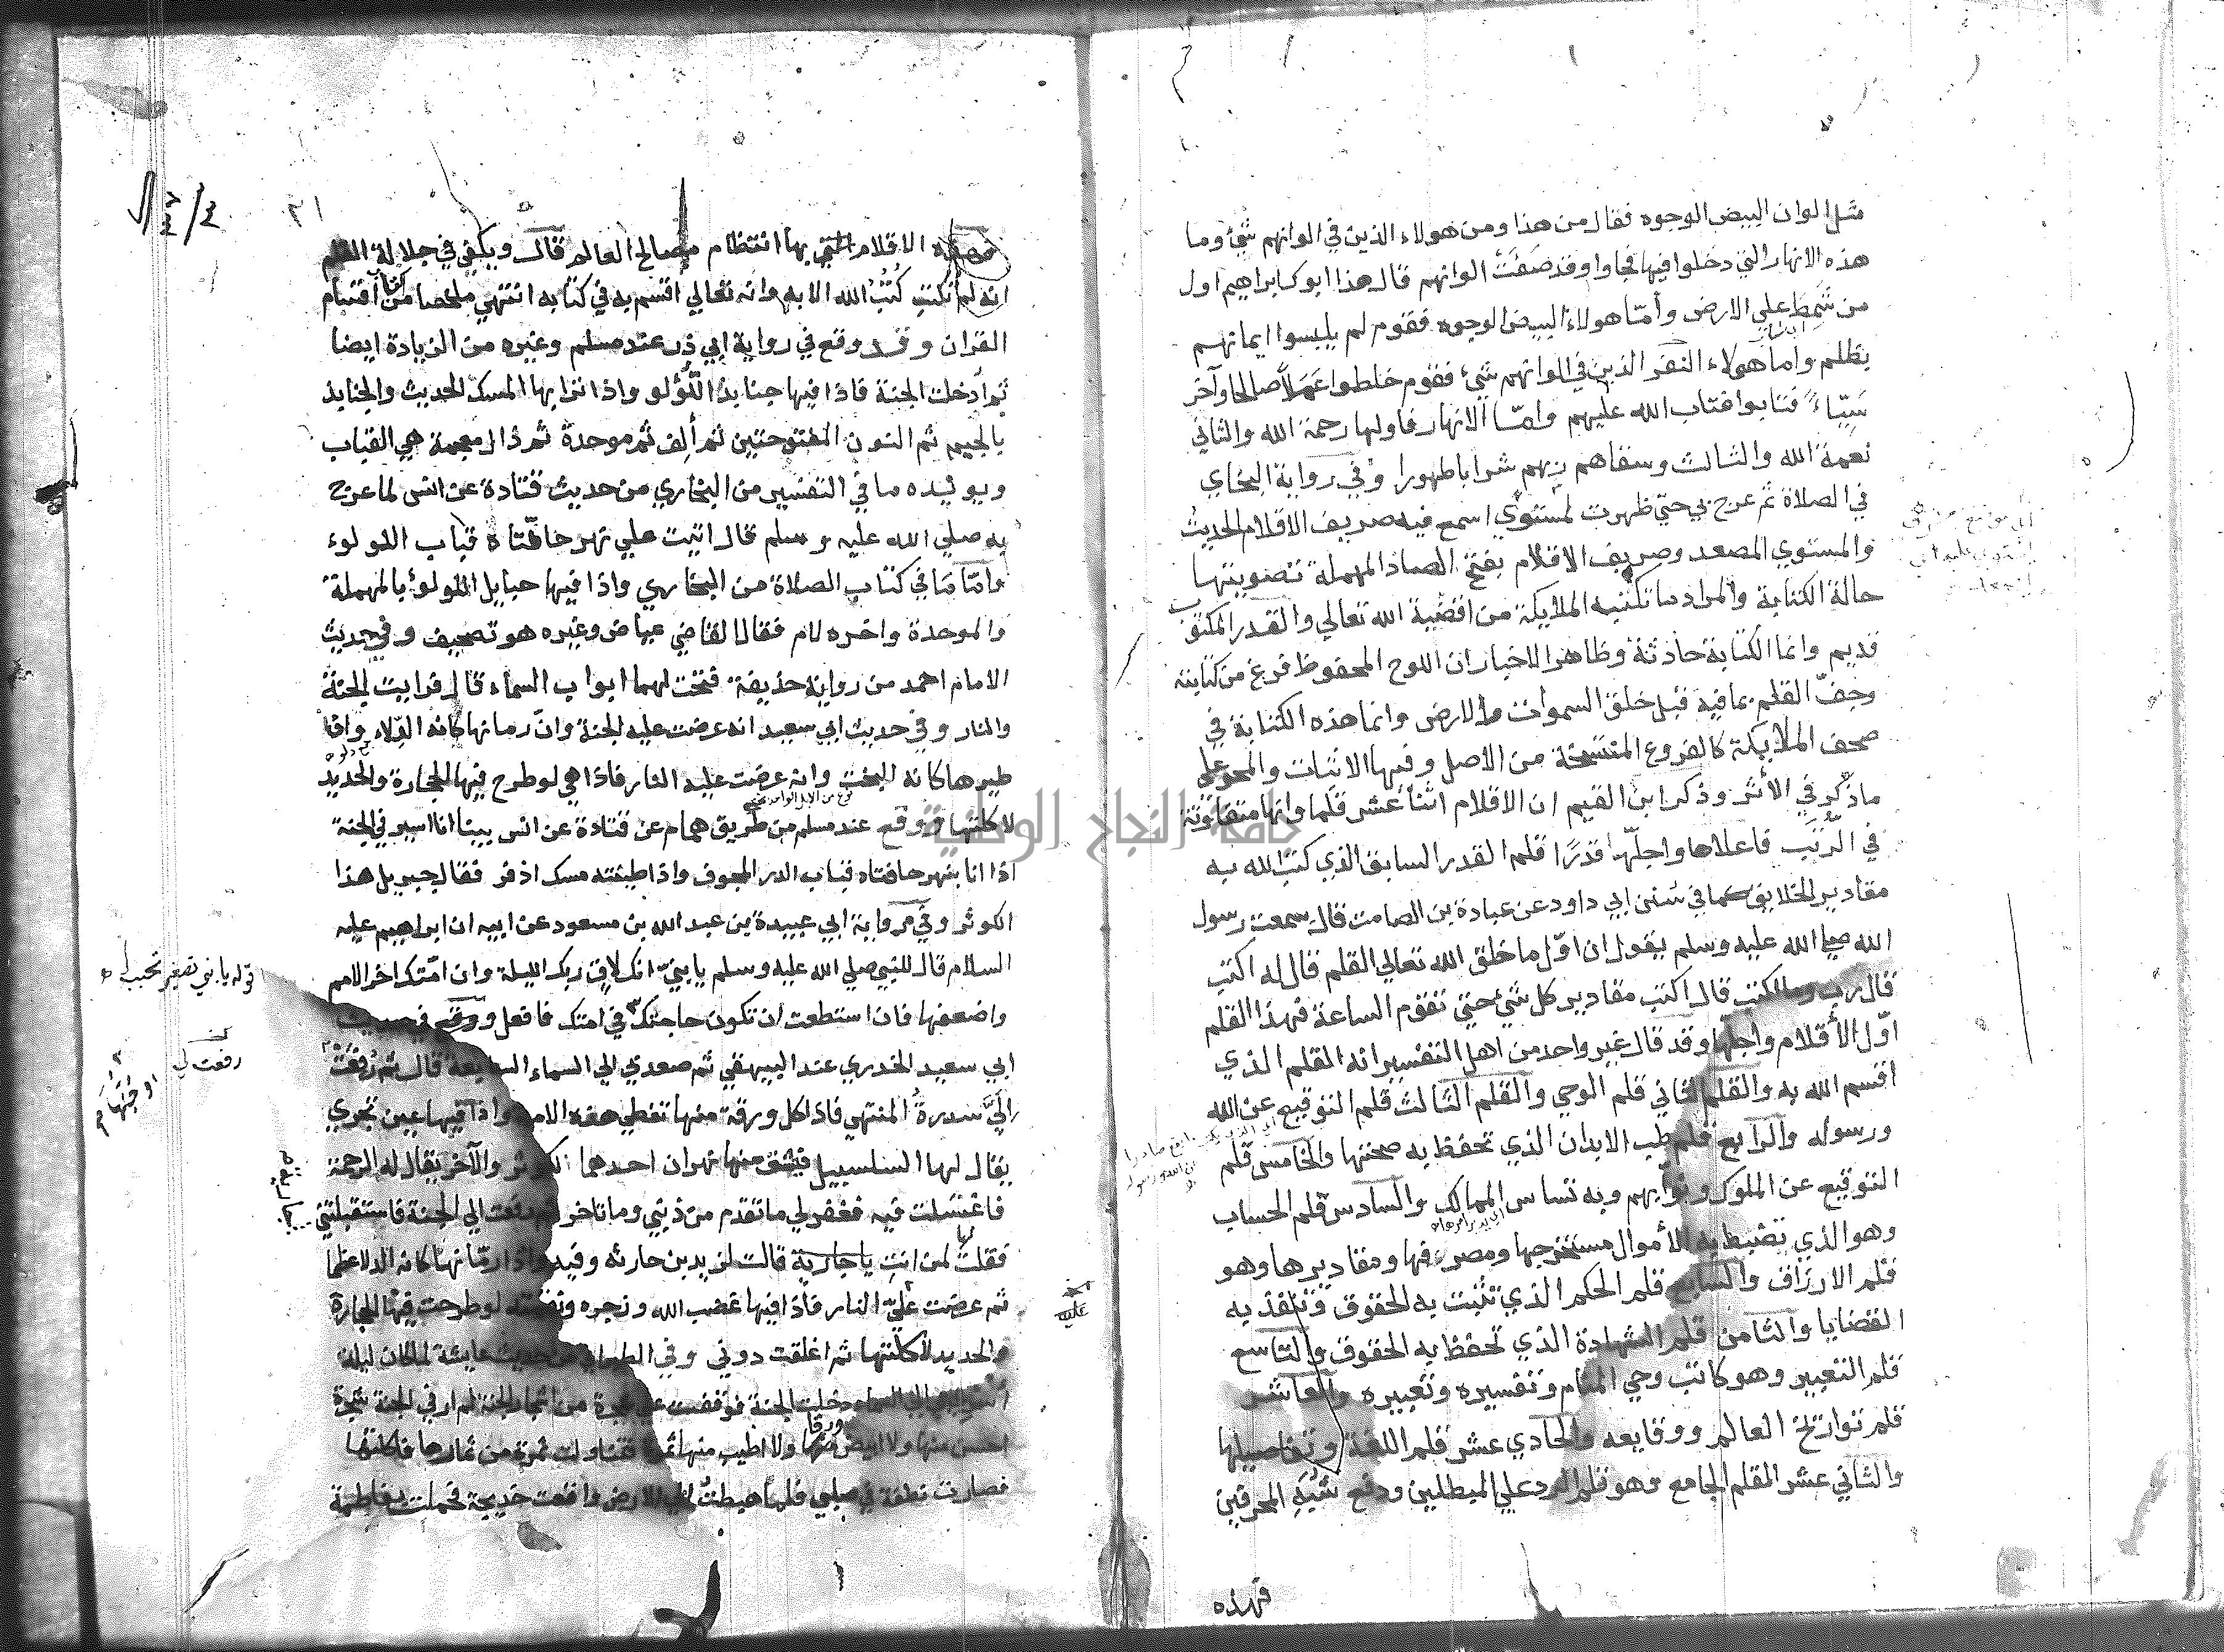 مثل الوان البيض الوجوه فقال من هذا ومن هولاء الذين في الوانهم شيء وما
هذه الانهار التي دخلوا فيها فجاوا وقد صَفَتْ الوانهم قال هذا ابوك ابراهيم اول
من شَمِطَ على الارض وأمّا هولاء البيض الوجوه فقوم لم يلبسوا ايمانهم
بظلم واما هولاء النفر الذين في الوانهم شيء فقوم خلطوا عَمَلاً صالحا وآخر
سَيّاءً فتابوا فتاب الله عليهم وامّا الانهار فاولها رحمة الله والثاني
نعمة الله والثالث وسقاهم ربهم شرابا طهورا وفي رواية البخاي
في الصلاة ثم عرج بي حتي ظهرت لمستوي اسمع فيه صريف الاقلام الحديث
والمستوي المصعد وصريف الاقلام بفتح الصاد المهملة تصويبتها
حالة الكتابة والمراد ما تكتبه الملايكة من اقضية الله تعالي والقدر المكتوب
قديم وانما الكتابة حادثة وظاهر الاخبار ان اللوح المحفوظ فرغ من كتابته
وجفّ القلم بما فيه قبل خلق السموات والارض وانما هذه الكتابة في
صحف الملايكة كالفروع المنتسخة من الاصل وفيها الاثبات والمحو علي
ما ذكر في الأثر وذكر ابن القيم ان الاقلام اثنا عشر قلما وانها متفاوتة
في الرُتَب فاعلاها واجلّها قدرًا قلم القدر السابق الذي كتب الله به
مقادير الخلايق كما في سُنن ابي داود عن عبادة بن الصامت قال سمعت رسول
الله صلي الله عليه وسلم يقول ان اوّل ما خلق الله تعالي القلم قال له اكتب
قال رب وما اكتب قال اكتب مقادير كل شيء حتي تقوم الساعة فهذا القلم
اوّل الأقلام واجلها وقد قال غير واحد من اهل التفسير انه القلم الذي
اقسم الله به والقلم الثاني قلم الوحي والقلم الثالث قلم التوقيع عن الله
ورسوله والرابع قلم طب الابدان الذي تحفظ به صحتها والخامس قلم
التوقيع عن الملوك ونوّابهم وبه تساس الممالك والسادس قلم الحساب
وهو الذي تضبط به الأموال مستخرجها ومصروفها ومقاديرها وهو
قلم الارزاق والسابع قلم الحكم الذي تثبت به الحقوق وتنفذ به
القضايا والثامن قلم الشهادة الذي تحفظ به الحقوق والتاسع
قلم التعبير وهو كاتب وحي المنام وتفسيره وتعبيره والعاشر
قلم تواريخ العالم ووقايعه والحادي عشر قلم اللغة وتفاصيلها
والثاني عشر القلم الجامع وهو قلم الرد علي المبطلين ودفع شُبَهِ المحرفين
فهذه
٢١
فهذه الاقلام التي بها انتظام مصالح العالم قال ويكفي في جلالة القلم
انه لم تكتب كُتُبُ الله الا به وانه تعالي اقسم به في كتابه انتهي ملخصا من كتاب اقسام
القران وقد وقع في رواية ابي ذر عند مسلم وغيره من الزيادة ايضا
ثم ادخلت الجنة فاذا فيها جنابذ اللؤلو واذا ترابها المسك الحديث والجنابذ
بالجيم ثم النون المفتوحتين ثم ألف ثم موحدة ثم ذال معجمة هي القباب
ويويده ما في التفسير من البخاري من حديث قتادة عن انس لما عرج
به صلي الله عليه وسلم قال اتيت علي نهر حافّتاه قباب اللولوء
وامّا مَا في كتاب الصلاة من البخاري واذا فيها حبايل اللولؤ بالمهملة
والموحدة واخره لام فقال القاضي عياض وغيره هو تصحيف وفي حديث
الامام احمد من رواية حذيفة فتحت لهما ابواب السماء قال فرايت الجنة
والنار وفي حديث ابي سعيد انه عرضت عليه الجنة وانّ رمانها كانه الدِّلاء واذا
جمع دلو
طيرها كانه البخت وانه عرضت عليه النار فاذا هي لو طرح فيها الحجارة والحديد
نوع من الابل الواحد بختي
لاكلتها ووقع عند مسلم من طريق همام عن قتادة عن انس بينا انا اسير في الجنة
اذا انا بنهر حافتاه قباب الدر المجوف واذا طينته مسك اذفر فقال جبريل هذا
الكوثر وفي رواية ابي عبيدة بن عبد الله بن مسعود عن ابيه ان ابراهيم عليه
السلام قال للنبي صلي الله عليه وسلم يا بنيّ انك لاق ربك الليلة وان امّتك اخر الامم
واضعفها فان استطعت ان تكون حاجتك في امتك فافعل ووقع في حديث
ابي سعيد الخدري عند البيهقي ثم صعد بي الي السماء السابعة قال ثم رُفِعَتْ
اليَّ سدرةُ المنتهي فاذا كل ورقة منها تغطي هذه الامة واذا فيها عين تجري
يقال لها السلسبيل فيشق منها نهران احدهما الكوثر والآخر يقال له الرحمة
فاغتسلت فيه فغفر لي ما تقدم من ذنبي وما تاخر ثم رفعت الي الجنة فاستقبلتني
جارية
فقلت لها لمن انتِ يا جارية قالت لزيد بن حارثه وفيه واذا رمّانها كانه الدلا عظما
ثم عرضت عليّ النار فاذا فيها غضب الله وزجره ونقمته لو طرحت فيها الحجارة
والحديد لاكلتها ثم اغلقت دوني وفي الطبراني من حديث عايشة لما كان ليلة
اسري بي الي السماء دخلت الجنة فوقفت علي شجرة من اشجار الجنة لم ار في الجنة شجرة
احسن منها ولا ابيض منها ورقا ولا اطيب منها ثمرة فتناولت ثمرة من ثمارها فاكلتها
فصارت نطفة في صلبي فلما هبطت الي الارض واقعت خديجة فحملت بفاطمة
قوله يا بني تصغير تحبب
رفعت لي
جامعة النجاح الوطنية